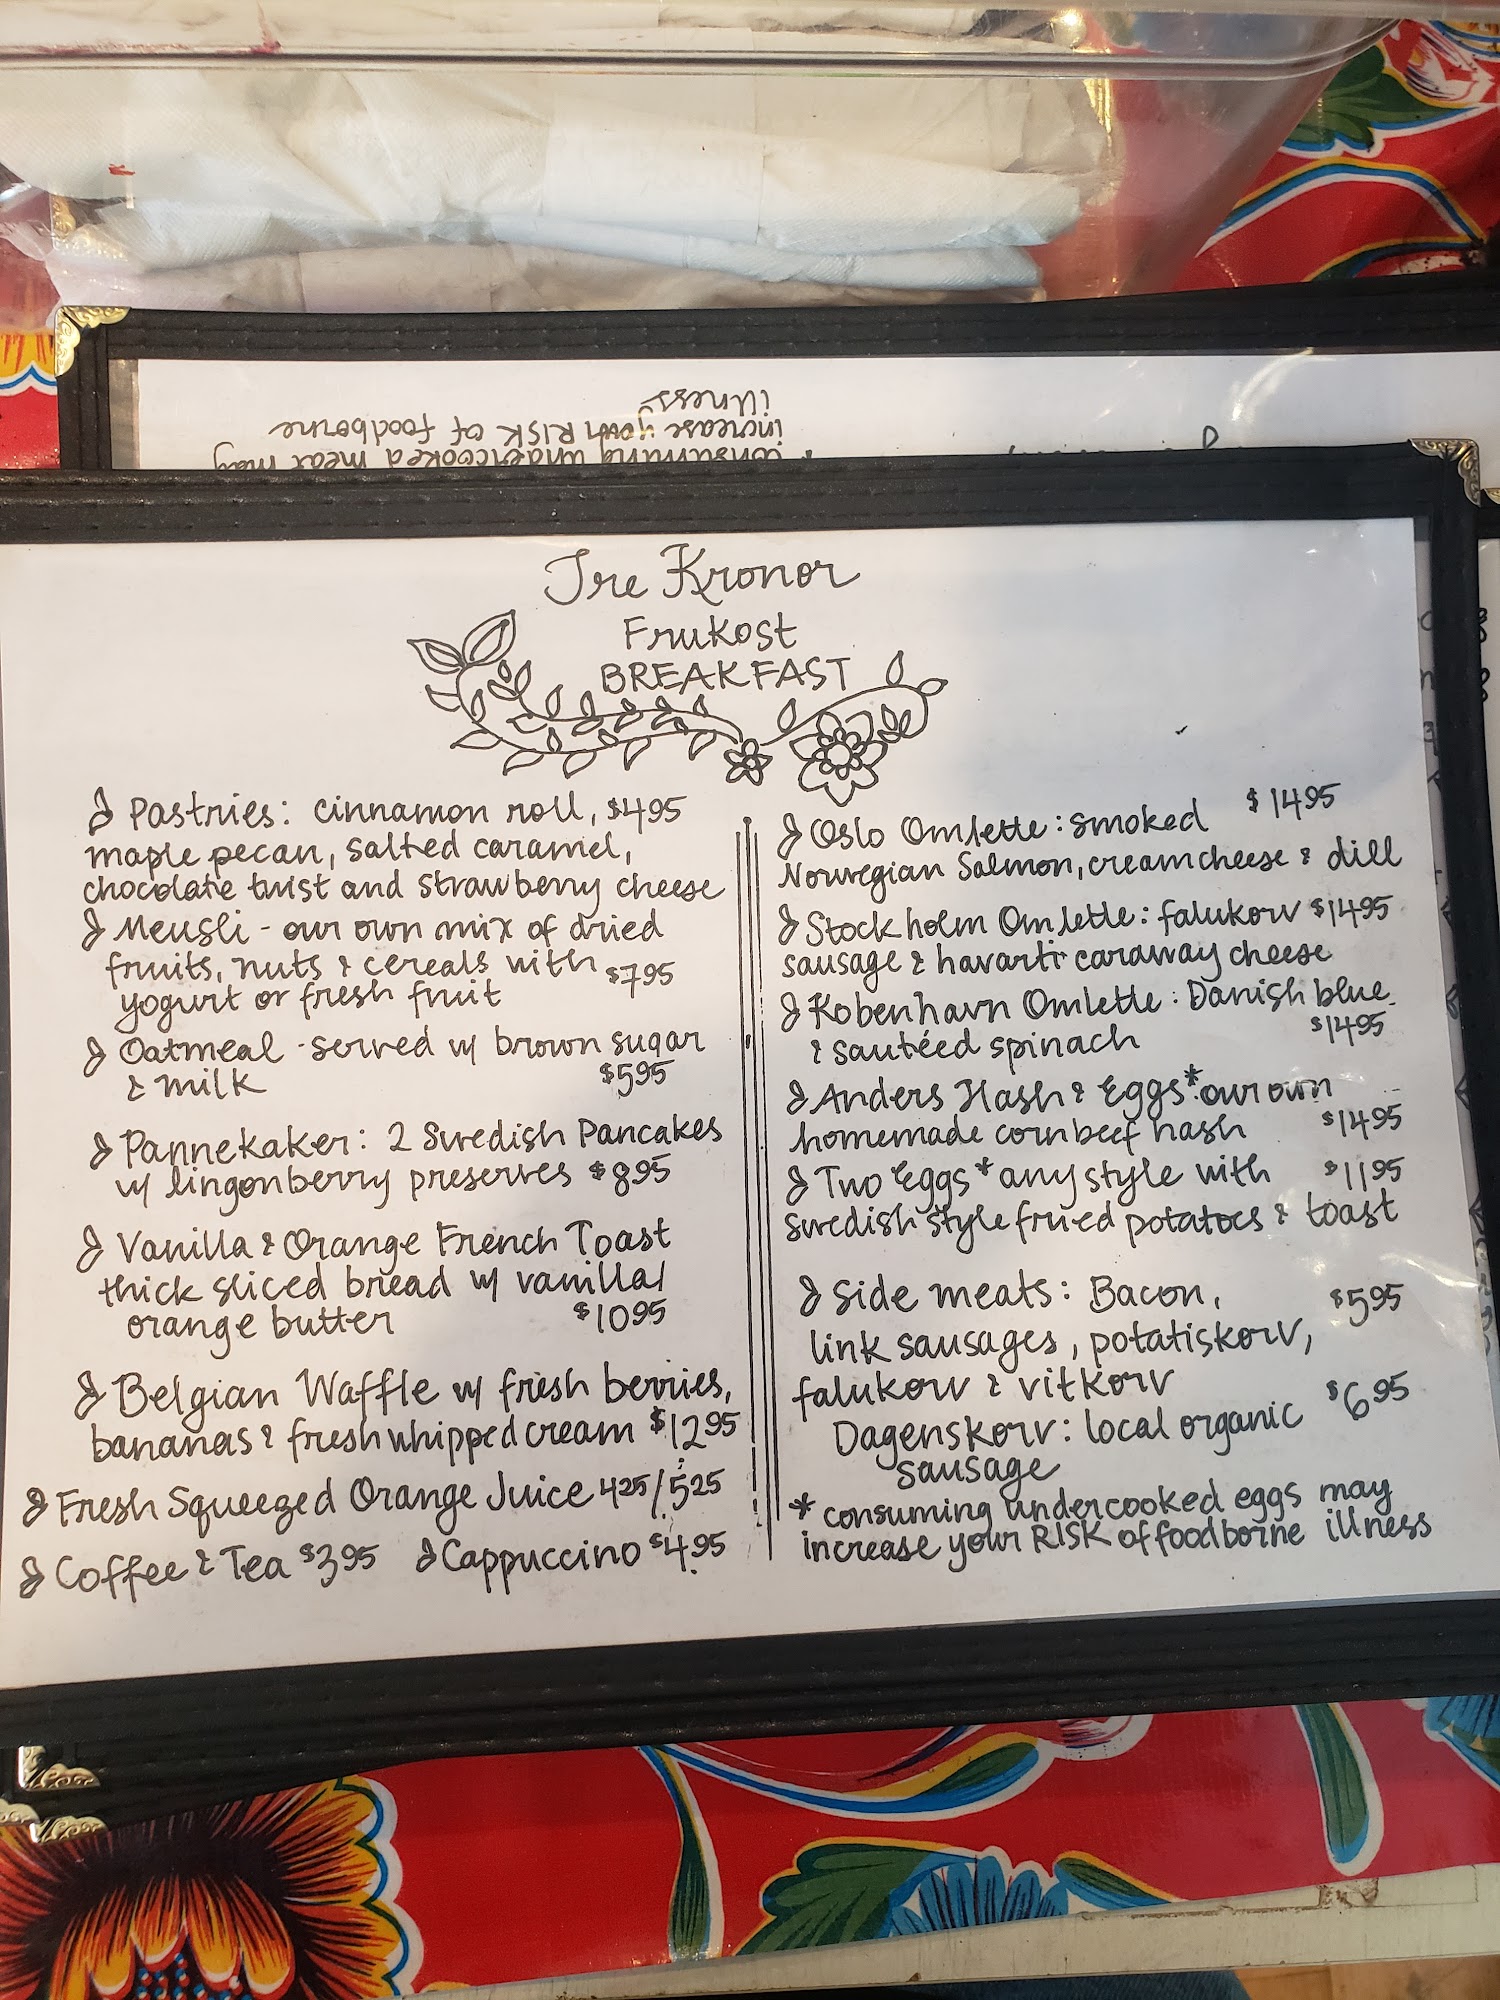 illness
increase your RISK of foodborne
consuming undercooked meat may
Tre Kronor
Frukost
BREAKFAST
Pastries: cinnamon roll, $4.95
maple pecan, salted caramel,
chocolate twist and strawberry cheese
Meusli - our own mix of dried
fruits, nuts & cereals with $7.95
yogurt or fresh fruit
Oatmeal - served w/ brown sugar
& milk $5.95
Pannekaker: 2 Swedish Pancakes
w/ lingonberry preserves $8.95
Vanilla & Orange French Toast
thick sliced bread w/ vanilla/
orange butter $10.95
Belgian Waffle w/ fresh berries,
bananas & fresh whipped cream $12.95
Fresh Squeezed Orange Juice 4.25/5.25
Coffee & Tea $3.95 Cappuccino $4.95
Oslo Omlette: smoked $14.95
Norwegian Salmon, cream cheese & dill
Stockholm Omlette: falukorv $14.95
sausage & havarti caraway cheese
Kobenhavn Omlette: Danish blue
& sautéed spinach $14.95
Anders Hash & Eggs*: our own
homemade corn beef hash $14.95
Two Eggs* any style with $11.95
swedish style fried potatoes & toast
Side meats: Bacon, $5.95
link sausages, potatiskorv,
falukorv & vitkorv
Dagenskorv: local organic $6.95
sausage
* consuming undercooked eggs may
increase your RISK of foodborne illness